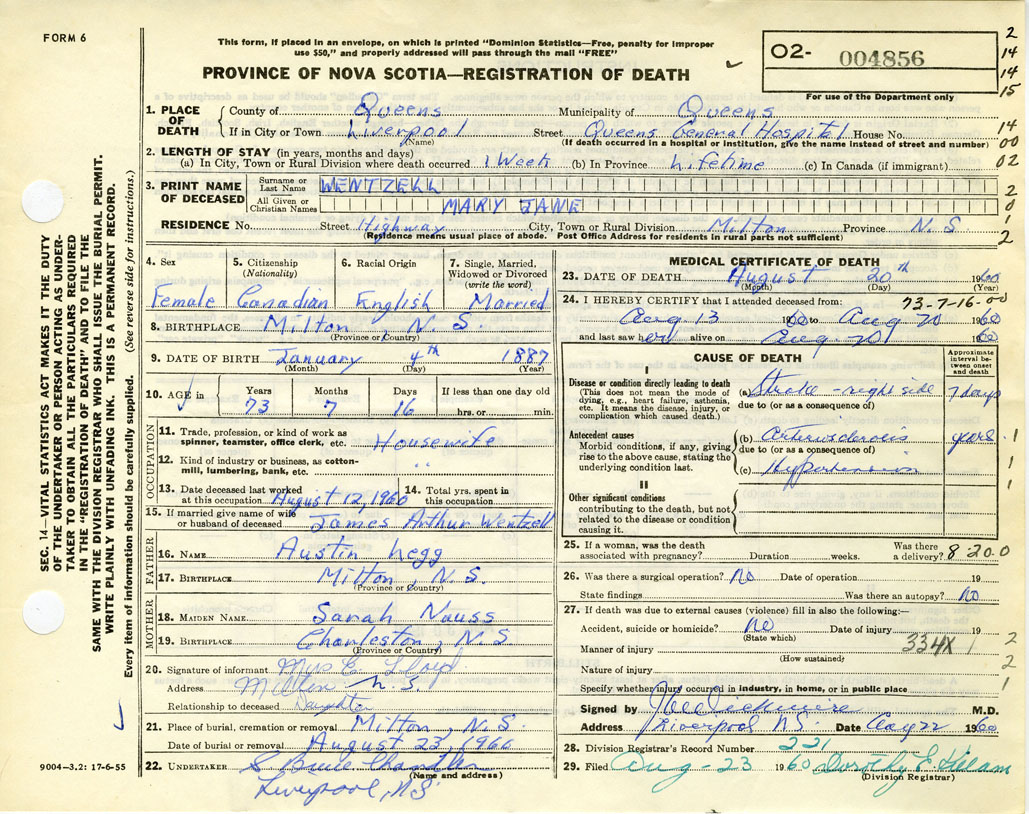 FORM 6
This form, if placed in an envelope, on which is printed "Dominion Statistics—Free, penalty for improper
use $50," and properly addressed will pass through the mail "FREE"
PROVINCE OF NOVA SCOTIA—REGISTRATION OF DEATH
O2- 004856
For use of the Department only
2
14
14
15
1. PLACE OF DEATH
County of Queens Municipality of Queens
If in City or Town Liverpool Street Queens General Hospital House No. 14
(Name) (If death occurred in a hospital or institution, give the name instead of street and number) 00
2. LENGTH OF STAY (in years, months and days)
(a) In City, Town or Rural Division where death occurred 1 Week (b) In Province Lifetime (c) In Canada (if immigrant) 02
3. PRINT NAME OF DECEASED
Surname or Last Name WENTZELL 2
All Given or Christian Names MARY JANE 0
RESIDENCE No. Street Highway City, Town or Rural Division Milton Province N. S 1
(Residence means usual place of abode. Post Office Address for residents in rural parts not sufficient) 2
4. Sex Female
5. Citizenship (Nationality) Canadian
6. Racial Origin English
7. Single, Married, Widowed or Divorced (write the word) Married
8. BIRTHPLACE Milton, N. S.
(Province or Country)
9. DATE OF BIRTH January 4th 1887
(Month) (Day) (Year)
10. AGE in Years 73 Months 7 Days 16 If less than one day old hrs. or min.
OCCUPATION
11. Trade, profession, or kind of work as spinner, teamster, office clerk, etc. Housewife
12. Kind of industry or business, as cotton-mill, lumbering, bank, etc. " "
13. Date deceased last worked at this occupation August 12, 1960 14. Total yrs. spent in this occupation
15. If married give name of wife or husband of deceased James Arthur Wentzell
FATHER
16. NAME Austin Legg
17. BIRTHPLACE Milton, N. S.
(Province or Country)
MOTHER
18. MAIDEN NAME Sarah Nauss
19. BIRTHPLACE Charleston, N. S
(Province or Country)
20. Signature of informant Mrs C Lloyd
Address Milton N. S.
Relationship to deceased Daughter
21. Place of burial, cremation or removal Milton, N. S.
Date of burial or removal August 23, 1960
22. UNDERTAKER S Bruce Chandler
(Name and address)
Liverpool, N.S.
MEDICAL CERTIFICATE OF DEATH
23. DATE OF DEATH August 20th 1960
(Month) (Day) (Year)
24. I HEREBY CERTIFY that I attended deceased from: 73-7-16-00
Aug 13 1960 to Aug 20 1960
and last saw her alive on Aug 20 1960
CAUSE OF DEATH
Approximate interval between onset and death
I
Disease or condition directly leading to death
(This does not mean the mode of dying, e.g., heart failure, asthenia, etc. It means the disease, injury, or complication which caused death.)
(a) Stroke - right side 7 days
due to (or as a consequence of)
Antecedent causes
Morbid conditions, if any, giving rise to the above cause, stating the underlying condition last.
(b) Arteriosclerosis years 1
due to (or as a consequence of)
(c) Hypertension 1
II
1
Other significant conditions
contributing to the death, but not related to the disease or condition causing it.
25. If a woman, was the death associated with pregnancy? Duration weeks. Was there a delivery? 8-20.0
26. Was there a surgical operation? No Date of operation 19
State findings Was there an autopsy? No
27. If death was due to external causes (violence) fill in also the following:—
Accident, suicide or homicide? No Date of injury 19 2
(State which)
Manner of injury 334X 1
(How sustained) 2
Nature of injury
Specify whether injury occurred in industry, in home, or in public place 1
Signed by M.D.
Address Liverpool NS. Date Aug 22 1960
28. Division Registrar's Record Number 221
29. Filed Aug-23 1960 Dorothy E.
(Division Registrar)
SEC. 14—VITAL STATISTICS ACT MAKES IT THE DUTY
OF THE UNDERTAKER OR PERSON ACTING AS UNDER-
TAKER TO OBTAIN ALL THE PARTICULARS REQUIRED
IN THE "REGISTRATION OF DEATH" AND TO FILE THE
SAME WITH THE DIVISION REGISTRAR WHO SHALL ISSUE THE BURIAL PERMIT.
WRITE PLAINLY WITH UNFADING INK. THIS IS A PERMANENT RECORD.
Every item of information should be carefully supplied. (See reverse side for instructions.)
9004—3.2: 17-6-55